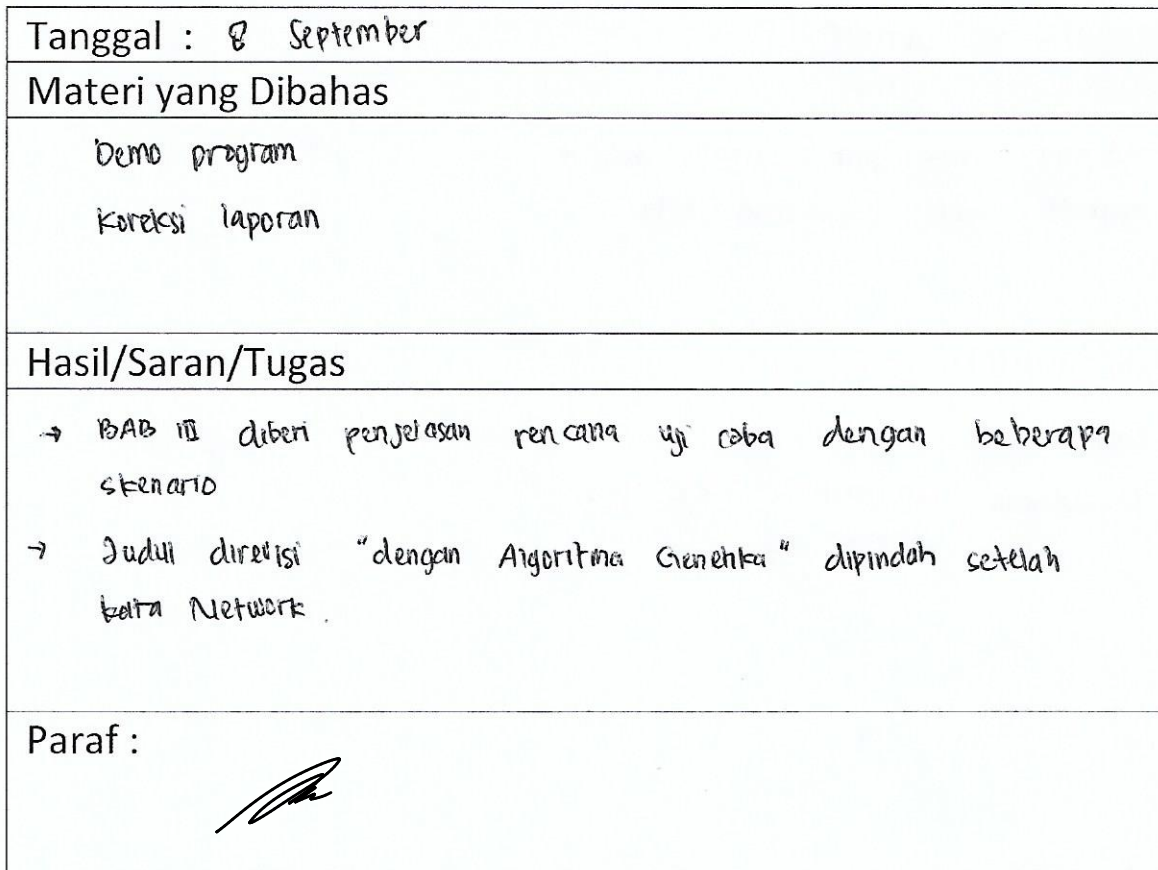 Tanggal : 8 September
Materi yang Dibahas
Demo program
Koreksi laporan
Hasil/Saran/Tugas
→ BAB III diberi penjelasan rencana uji coba dengan beberapa
skenario
→ Judul direvisi "dengan Algoritma Genetika" dipindah setelah
kata Network.
Paraf :